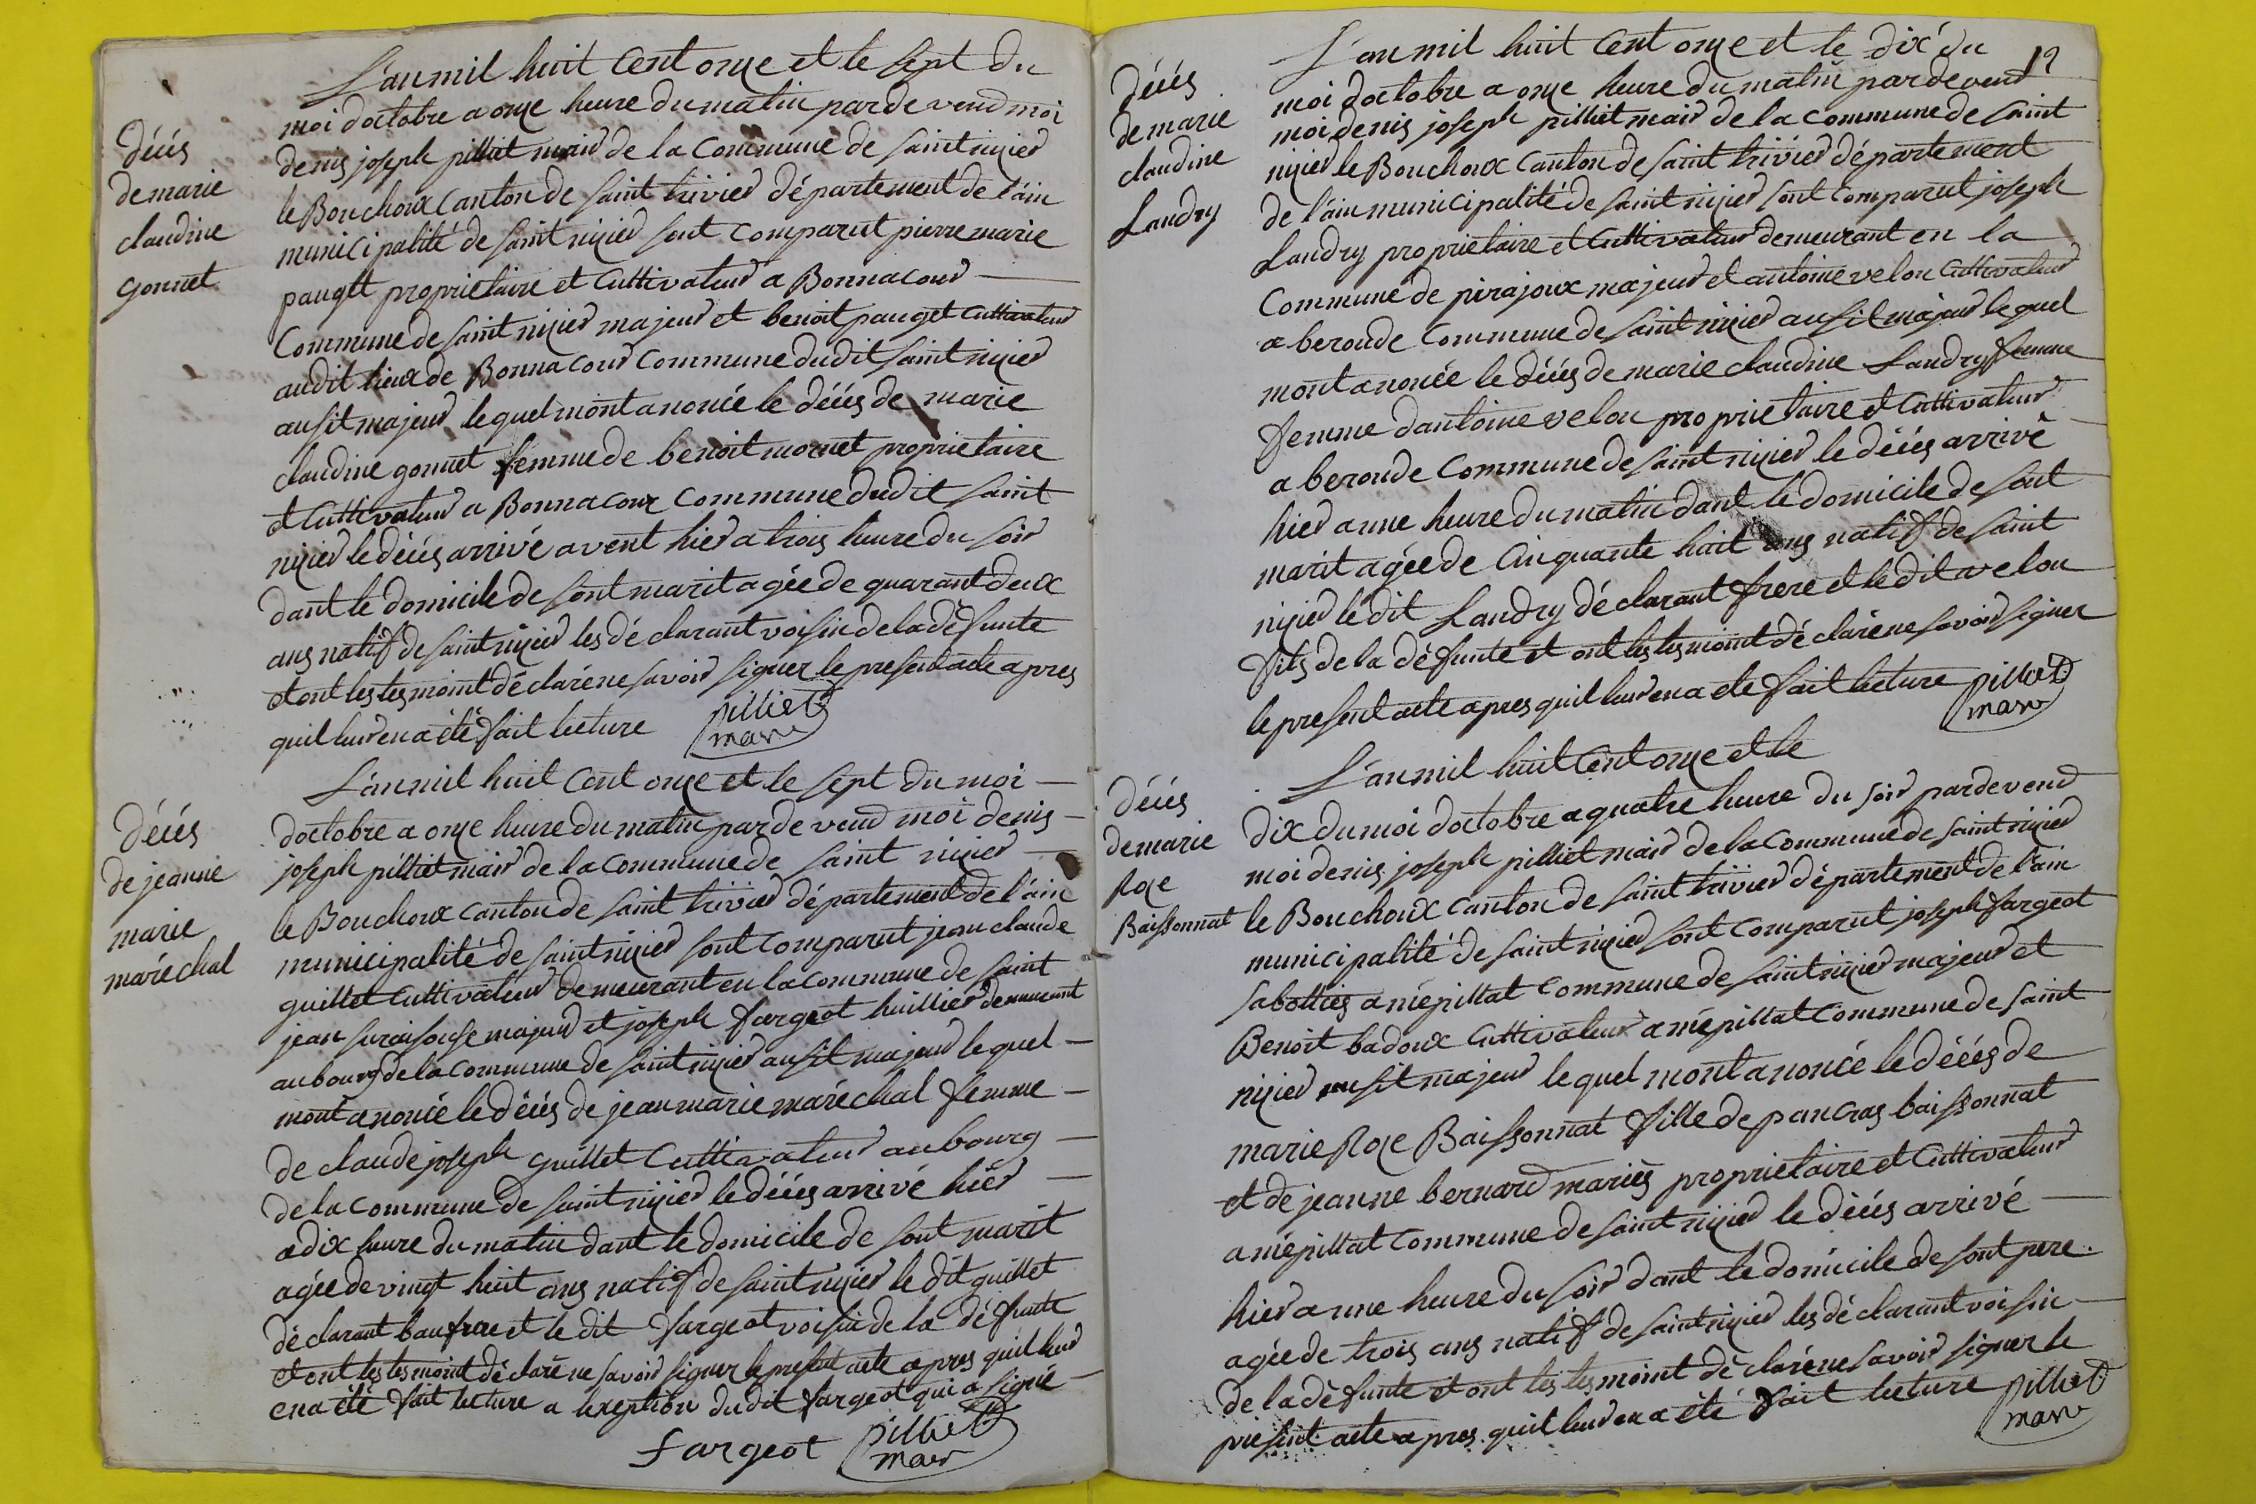 L'an mil huit cent onze et le sept du
moi doctobre a onze heure du matin par de vend moi
denis joseph pilliet mair de la commune de saint nizier
le Bouchoux canton de saint trivier département de l'ain
municipalité de saint nizier sont comparut pierre marie
pauget proprietaire et cultivateur a Bonnacour
Commune de saint nizier majeur et benoit pauget cultivateur
audit lieux de Bonnacour commune dudit saint nizier
ausit majeur lequel mont anoncé le décés de marie
claudine gonnet femme de benoit mornet proprietaire
et cultivateur a Bonnacour commune dudit saint
nizier le décés arrivé avent hier a trois heure du soir
dant le domicile de sont marit agée de quarant deux
ans natif de saint nizier les déclarant voisin de la défunte
et ont les tesmoint déclaré ne savoir signer le present acte apres
quil leur en a été fait lecture pilliet
mair
décés
de marie
claudine
gonnet
L'an mil huit cent onze et le sept du moi
doctobre a onze heure du matin par de vend moi denis
joseph pilliet mair de la commune de saint nizier
le Bouchoux canton de saint trivier département de l'ain
municipalité de saint nizier sont comparut jean claude
guillet cultivateur demeurant en la commune de saint
jean sur reisouse majeur et joseph fargeot huillier demeurant
au bourg de la commune de saint nizier ausit majeur lequel
mont anoncé le décés de jean marie maréchal femme
de claude joseph guillet cultivateur au bourg
de la commune de saint nizier le décés arrivé hier
a dix heure du matin dant le domicile de sont marit
agée de vingt huit ans natif de saint nizier le dit guillet
déclarant baufrere et le dit fargeot voisin de la défunte
et ont les tesmoint déclaré ne savoir signer le present acte apres quil leur
en a été fait lecture a lexeption dudit fargeot qui a signé
fargeot pilliet
mair
décés
de jeanne
marie
maréchal
12
L'an mil huit cent onze et le dix du
moi doctobre a onze heure du matin par de vend
moi denis joseph pilliet mair de la commune de saint
nizier le Bouchoux canton de saint trivier département
de l'ain municipalité de saint nizier sont comparut joseph
Landry proprietaire et cultivateur demeurant en la
Commune de pirajoux majeur et antoine velon cultivateur
a beroude commune de saint nizier ausit majeur lequel
mont anoncée le décés de marie claudine Landry femme
femme dantoine velon proprietaire et cultivateur
a beroude commune de saint nizier le décés arrivé
hier a une heure du matin dant le domicile de sont
marit agée de cinquante huit ans natif de saint
nizier le dit Landry déclarant frere et le dit velon
fils de la défunte et ont les tesmoint déclaré ne savoir signer
le present acte apres quil leur en a ete fait lecture pilliet
mair
décés
de marie
claudine
Landry
L'an mil huit cent onze et le
dix du moi doctobre a quatre heure du soir par de vend
moi denis joseph pilliet mair de la commune de saint nizier
le Bouchoux canton de saint trivier département de l'ain
municipalité de saint nizier sont comparut joseph fargeot
sabottier a mépillat commune de saint nizier majeur et
Benoit badoux cultivateur a mépillat commune de saint
nizier ausit majeur lequel mont anoncé le décés de
marie Roze Baissonnat fille de pancras baissonnat
et de jeanne bernard mariés proprietaire et cultivateur
a mépillat commune de saint nizier le décés arrivé
hier a une heure du soir dant le domicile de sont pere
agée de trois ans natif de saint nizier les déclarant voisin
de la défunte et ont les tesmoint déclaré ne savoir signer le
present acte apres quil leur en a été fait lecture pilliet
mair
décés
de marie
Roze
Baissonnat